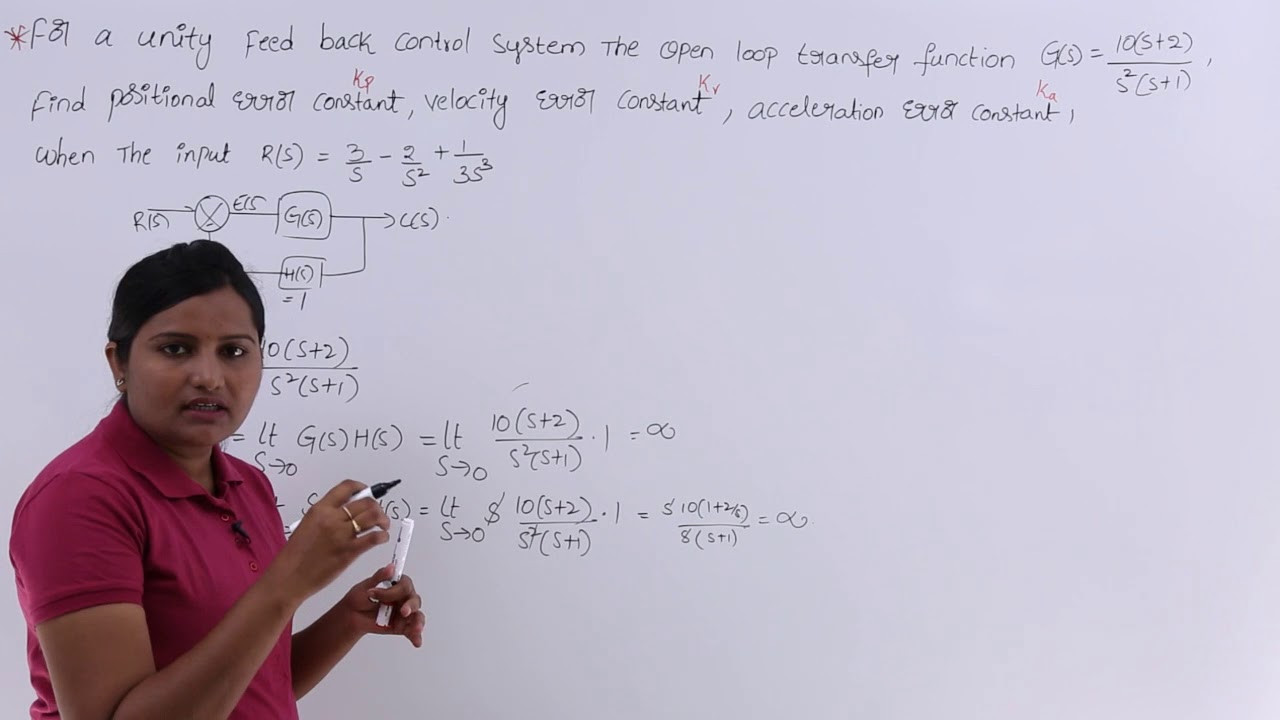 *For a unity feed back control system The open loop transfer function G(s) = 10(s+2) / s²(s+1),
Kp Kv Ka
find positional error constant, velocity error constant, acceleration error constant,
when The input R(s) = 3/s - 2/s² + 1/3s³
R(s) E(s G(s) C(s).
H(s)
= 1
10(s+2) / s²(s+1)
= lt s→0 G(s)H(s) = lt s→0 10(s+2) / s²(s+1) · 1 = ∞
(s) = lt s→0 s 10(s+2) / s²(s+1) · 1 = s 10(1+2/s) / s(s+1) = ∞